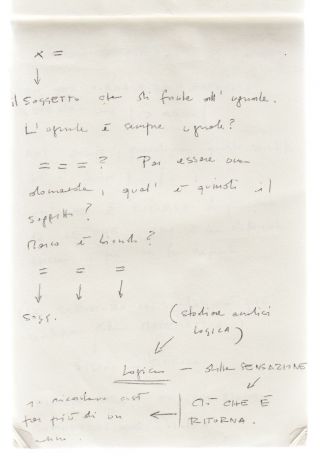 x =
il SOGGETTO che sta fronte all' uguale.
L'uguale è sempre uguale?
= = = ? Per essere una
domanda, qual' è quindi il
soggetto?
Marco è biondo?
= = =
Sogg.
(studiare analisi
LOGICA)
Logica — della SENSAZIONE
si ricordava così
per più di un
CIÒ CHE È
RITORNA.